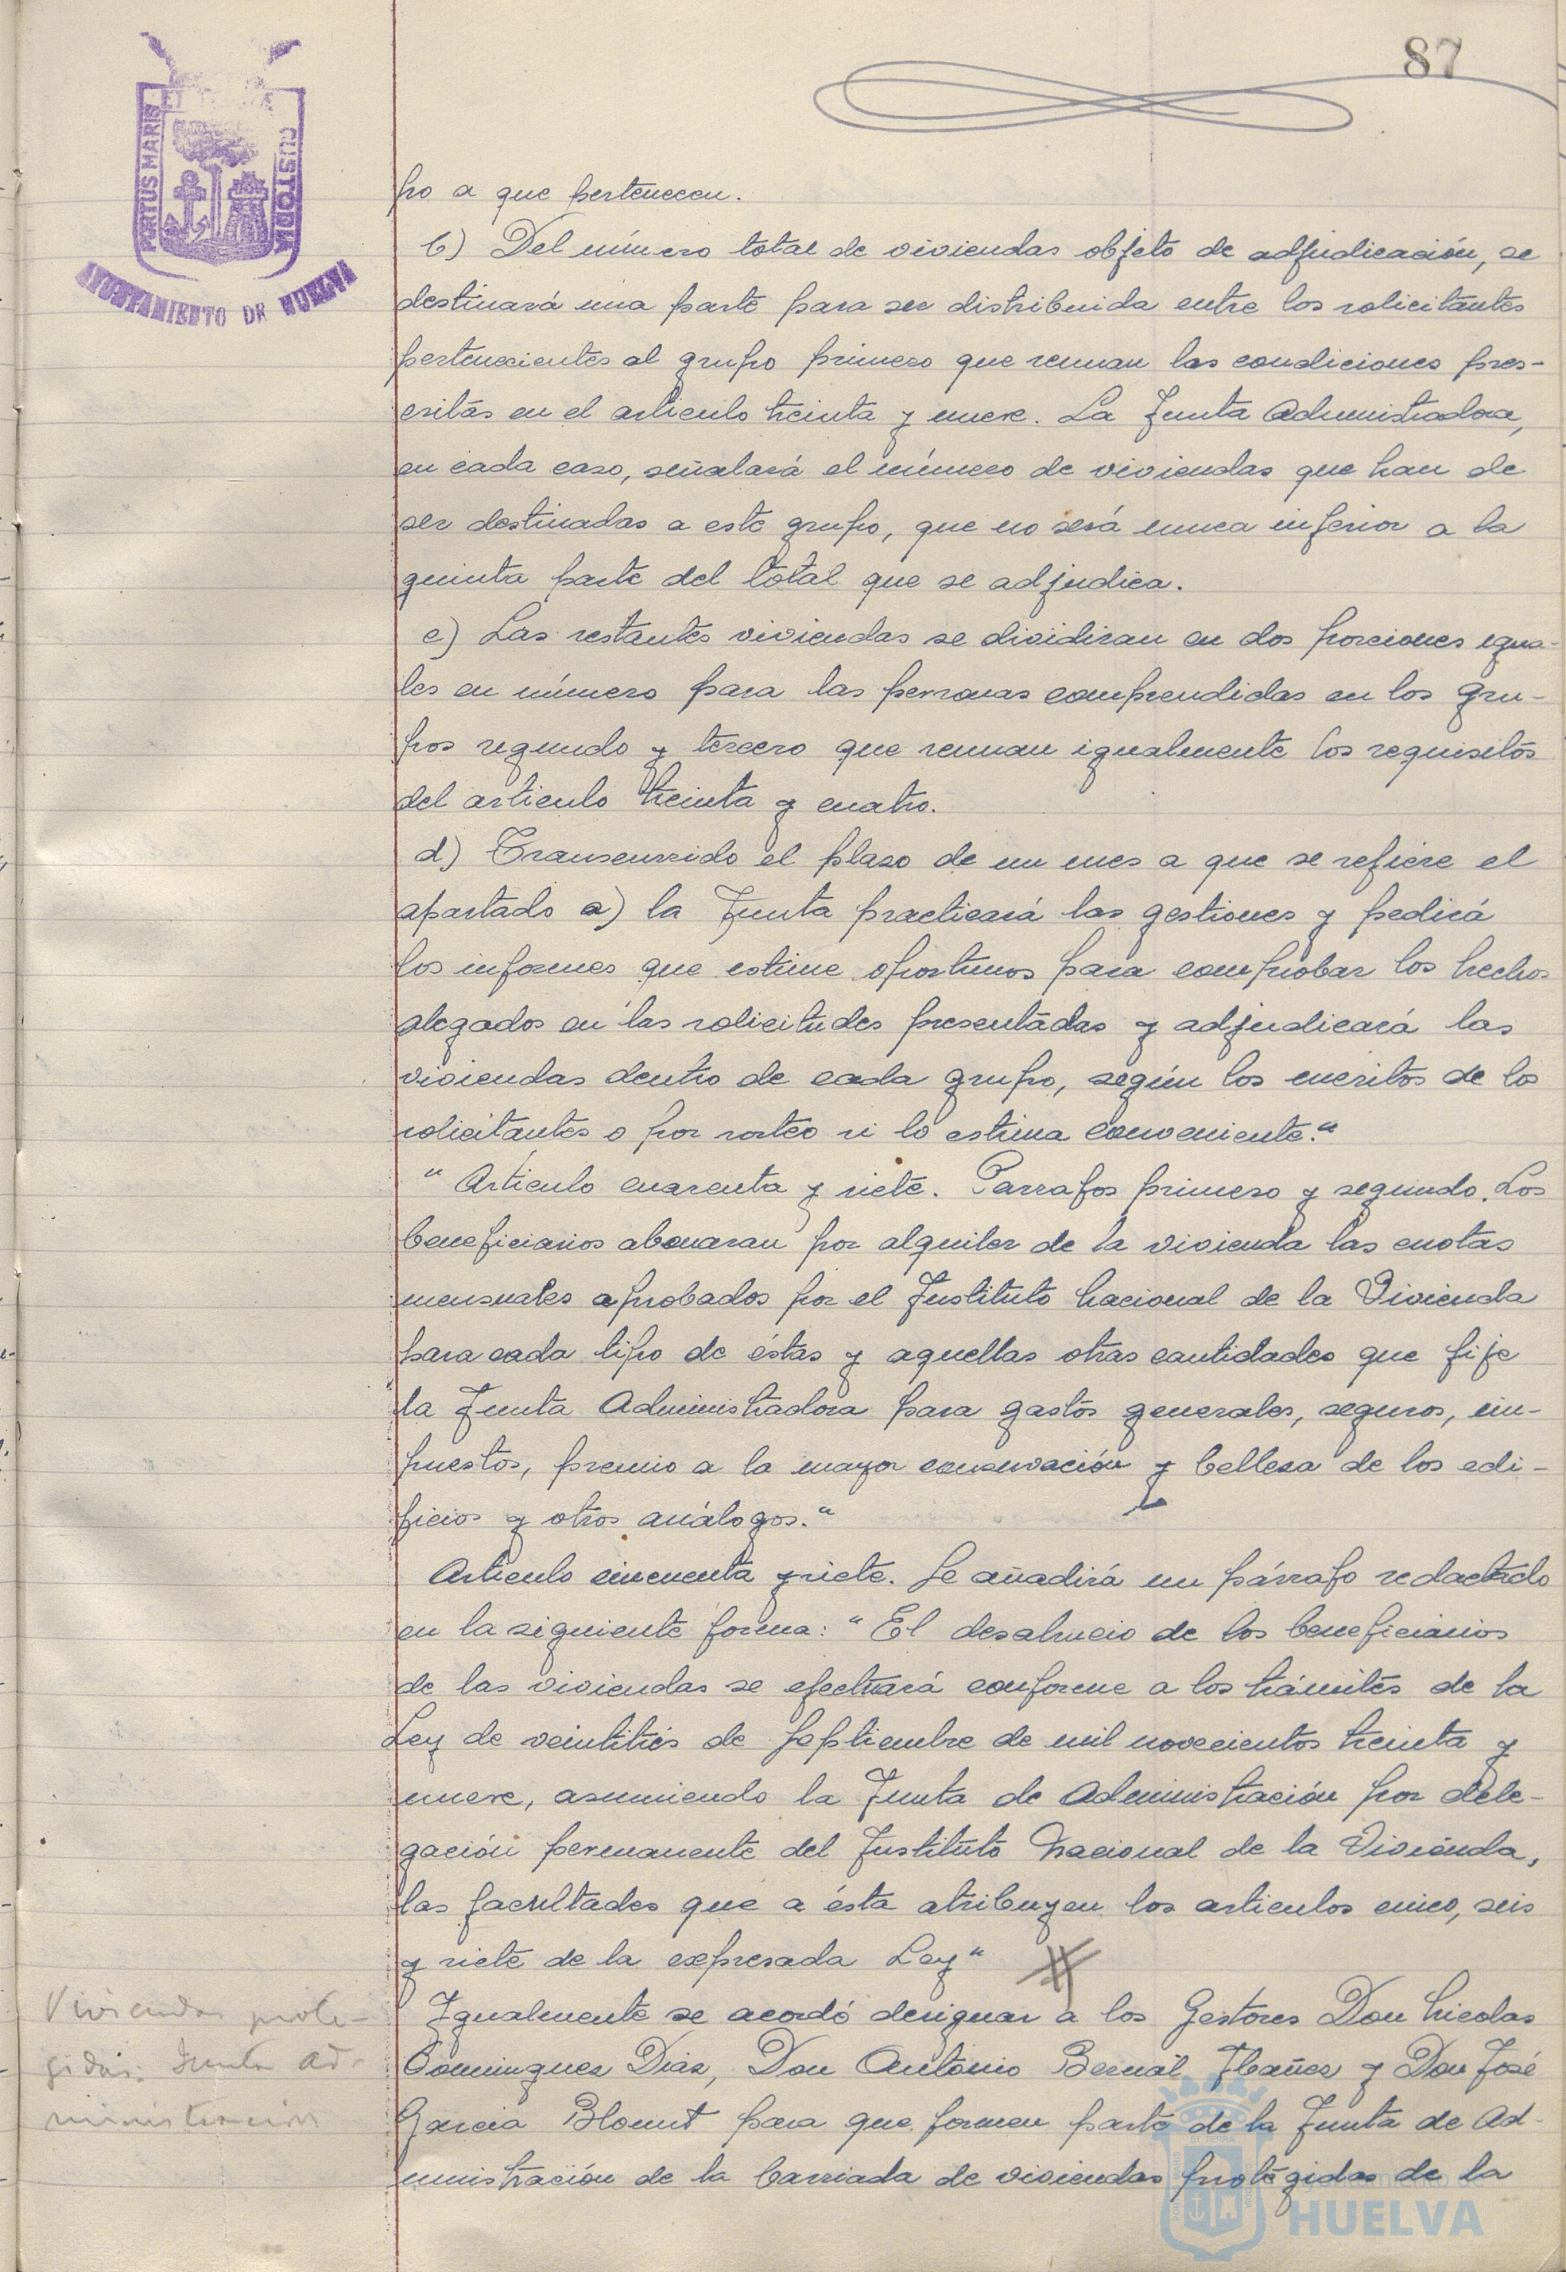 87
PORTUS MARIS
ET TERRÆ
CUSTODIA
AYUNTAMIENTO DE HUELVA
po a que pertenecen.
b) Del número total de viviendas objeto de adjudicación, se
destinará una parte para ser distribuida entre los solicitantes
pertenecientes al grupo primero que reunan las condiciones pres-
critas en el articulo treinta y nueve. La Junta Administradora,
en cada caso, señalará el número de viviendas que han de
ser destinadas a este grupo, que no será nunca inferior a la
quinta parte del total que se adjudica.
c) Las restantes viviendas se dividiran en dos porciones igua-
les en número para las personas comprendidas en los gru-
pos segundo y tercero que reunan igualmente los requisitos
del articulo treinta y cuatro.
d) Transcurrido el plazo de un mes a que se refiere el
apartado a) la Junta practicará las gestiones y pedirá
los informes que estime oportunos para comprobar los hechos
alegados en las solicitudes presentadas y adjudicará las
viviendas dentro de cada grupo, según los meritos de los
solicitantes o por sorteo si lo estima conveniente."
"Articulo cuarenta y siete. Parrafos primero y segundo. Los
beneficiarios abonaran por alquiler de la vivienda las cuotas
mensuales aprobados por el Instituto Nacional de la Vivienda
para cada tipo de éstas y aquellas otras cantidades que fije
la Junta Administradora para gastos generales, seguros, im-
puestos, premio a la mayor conservación y belleza de los edi-
ficios y otros análogos."
Articulo cincuenta y siete. Se añadirá un párrafo redactado
en la siguiente forma: "El desahucio de los beneficiarios
de las viviendas se efectuará conforme a los trámites de la
Ley de veintitrés de Septiembre de mil novecientos treinta y
nueve, asumiendo la Junta de Administración por dele-
gación permanente del Instituto Nacional de la Vivienda,
las facultades que a ésta atribuyen los articulos cinco, seis
y siete de la expresada Ley"
Viviendas prote-
gidas. Junta Ad-
ministración
Igualmente se acordó designar a los Gestores Don Nicolas
Dominguez Diaz, Don Antonio Bernal Ibañez y Don José
Garcia Blount para que formen parte de la Junta de Ad-
ministración de la barriada de viviendas protegidas de la
Ayuntamiento de
HUELVA